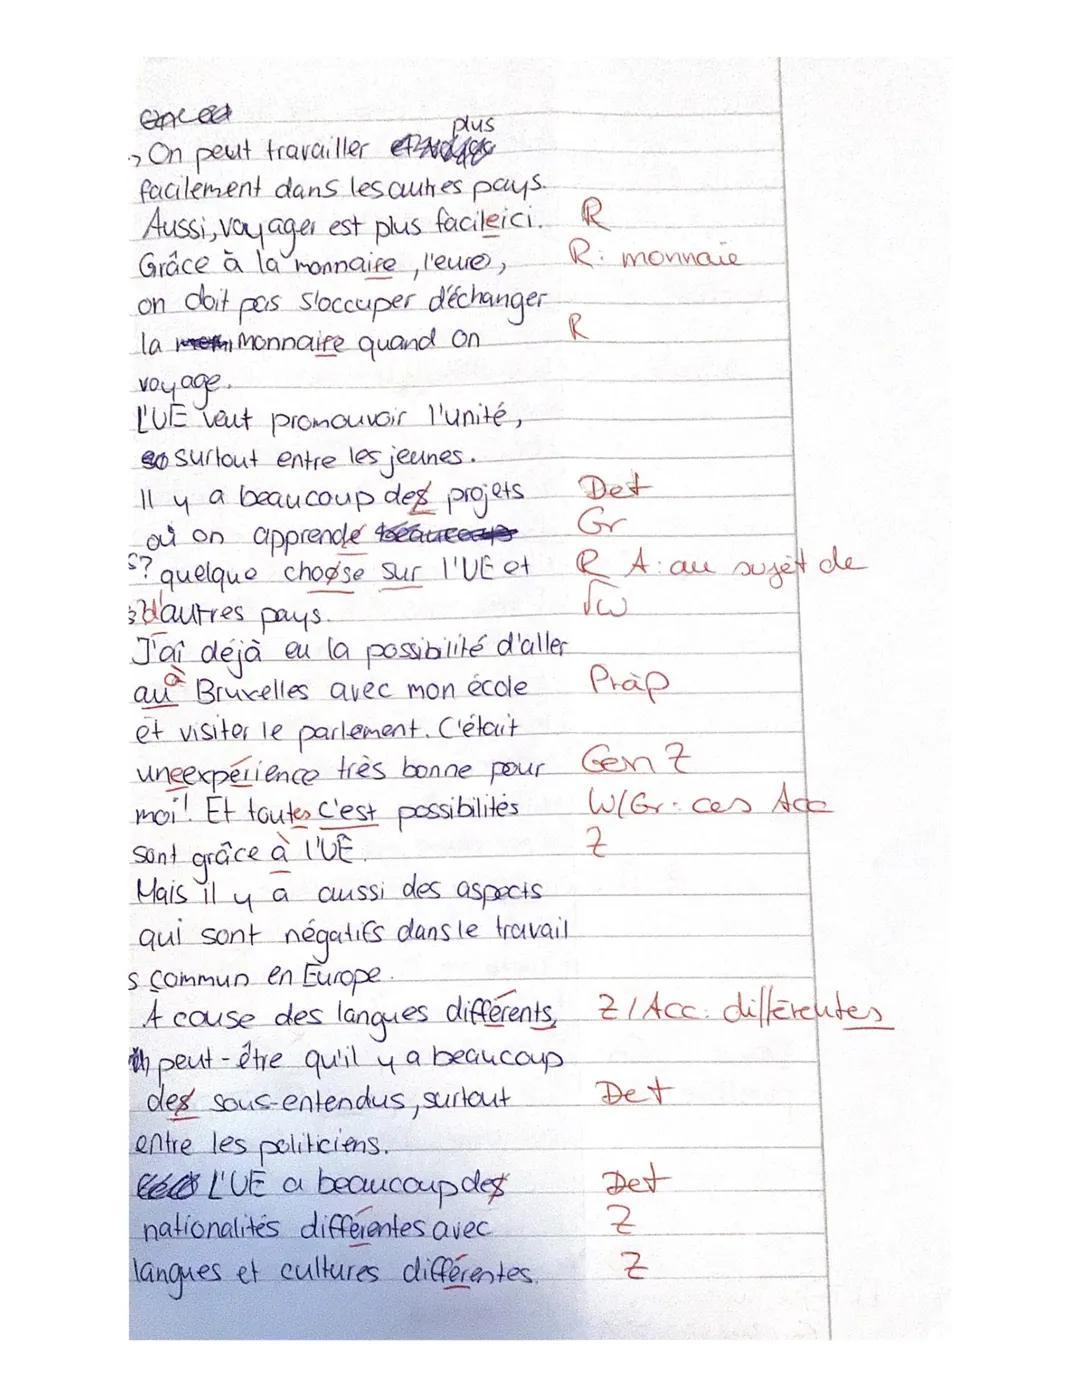 plus
On peut travailler
facilement dans les autres pays.
Aussi, voyager est plus facile ici. R
Grâce à la monnaire, l'euro, R: monnaie
on doit pas s'occuper d'échanger
la monnaire quand on R
voyage.
L'UE veut promouvoir l'unité,
surtout entre les jeunes.
Il y a beaucoup des projets Det
où on apprende Gr
s? quelque choose sur l'UE et R A: au sujet de
d'autres pays. √W
J'ai déjà eu la possibilité d'aller
au à Bruxelles avec mon école Präp
et visiter le parlement. C'était
une expérience très bonne pour Gen Z
moi! Et toutes c'est possibilités W/Gr: ces Acc
sont grâce à l'UE. Z
Mais il y a aussi des aspects
qui sont négatifs dans le travail
s commun en Europe.
A cause des langues différents, Z / Acc: différentes
peut-être qu'il y a beaucoup
des sous-entendus, surtout Det
entre les politiciens.
L'UE a beaucoup des Det
nationalités différentes avec Z
langues et cultures différentes. Z